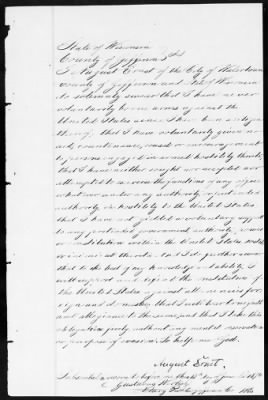 State of Wisconsin
County of Jefferson } ss
I August Ernst of the City of Watertown
County of Jefferson and State of Wisconsin
do solemnly swear that I have never
voluntarily borne arms against the
United States since I have been a citizen
thereof; that I have voluntarily given no
aid, countenance, counsel or encouragement
to persons engaged in armed hostility thereto;
that I have neither sought nor accepted nor
attempted to exercise the functions of any office
whatever under any authority or pretended
authority in hostility to the United States
that I have not yielded a voluntary support
to any pretended government, authority, power
or constitution within the United States hostile
or inimical thereto. And I do further swear
that to the best of my knowledge and ability I
will support and defend the constitution of
the United States against all enemies foreign
and domestic, that I will bear true faith
and allegiance to the same; and that I take this
obligation freely without any mental reservation
or purpose of evasion. So help me God.
August Ernst.
Subscribed and sworn to before me this day of